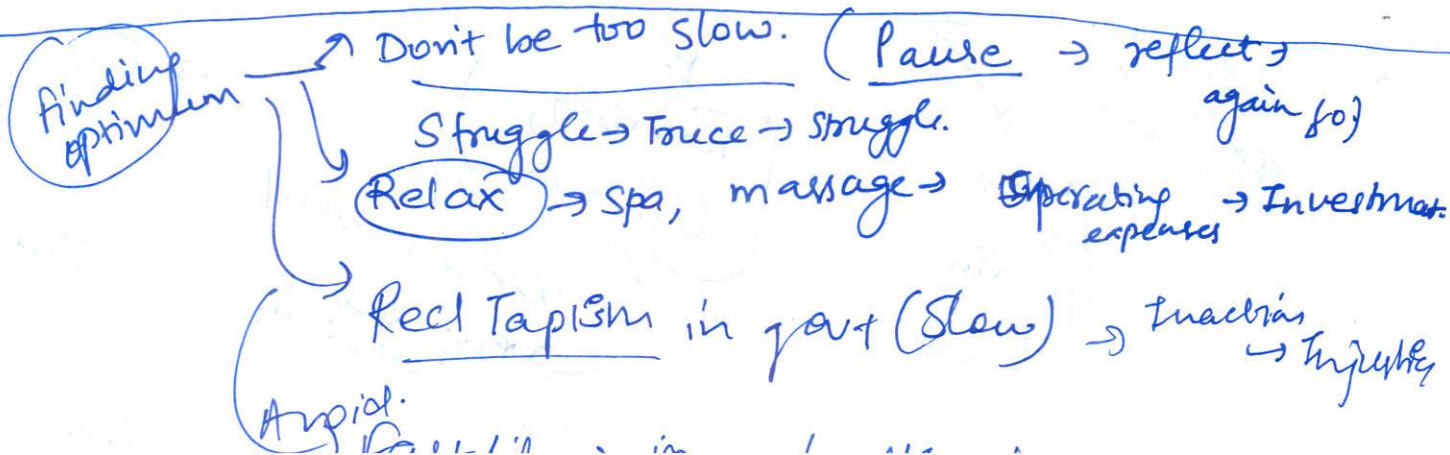 finding optimum → Don't be too slow. (Pause → reflect → again go)
Struggle → Truce → struggle.
Relax → Spa, massage → Operating expenses → Investmat.
Red Tapism in govt (Slow) → Inaction → Injustice
Avoid.